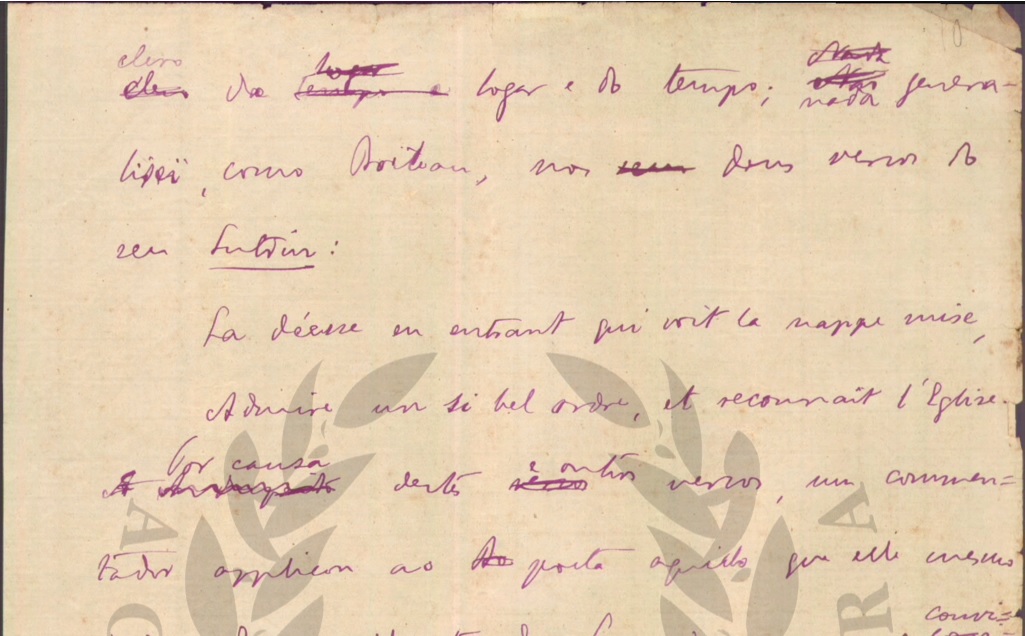 10
clero
clero do tempo e logar e do tempo; nada genera-
lisei, como Boileau, nos seus dous versos do
seu Lutrin:
La déesse en entrant qui voit la nappe mise,
Admire un si bel ordre, et reconnaît l'Eglise.
Por causa
A destes e outros versos, um commen-
tador applicou ao poeta aquillo que elle mesmo
convi-